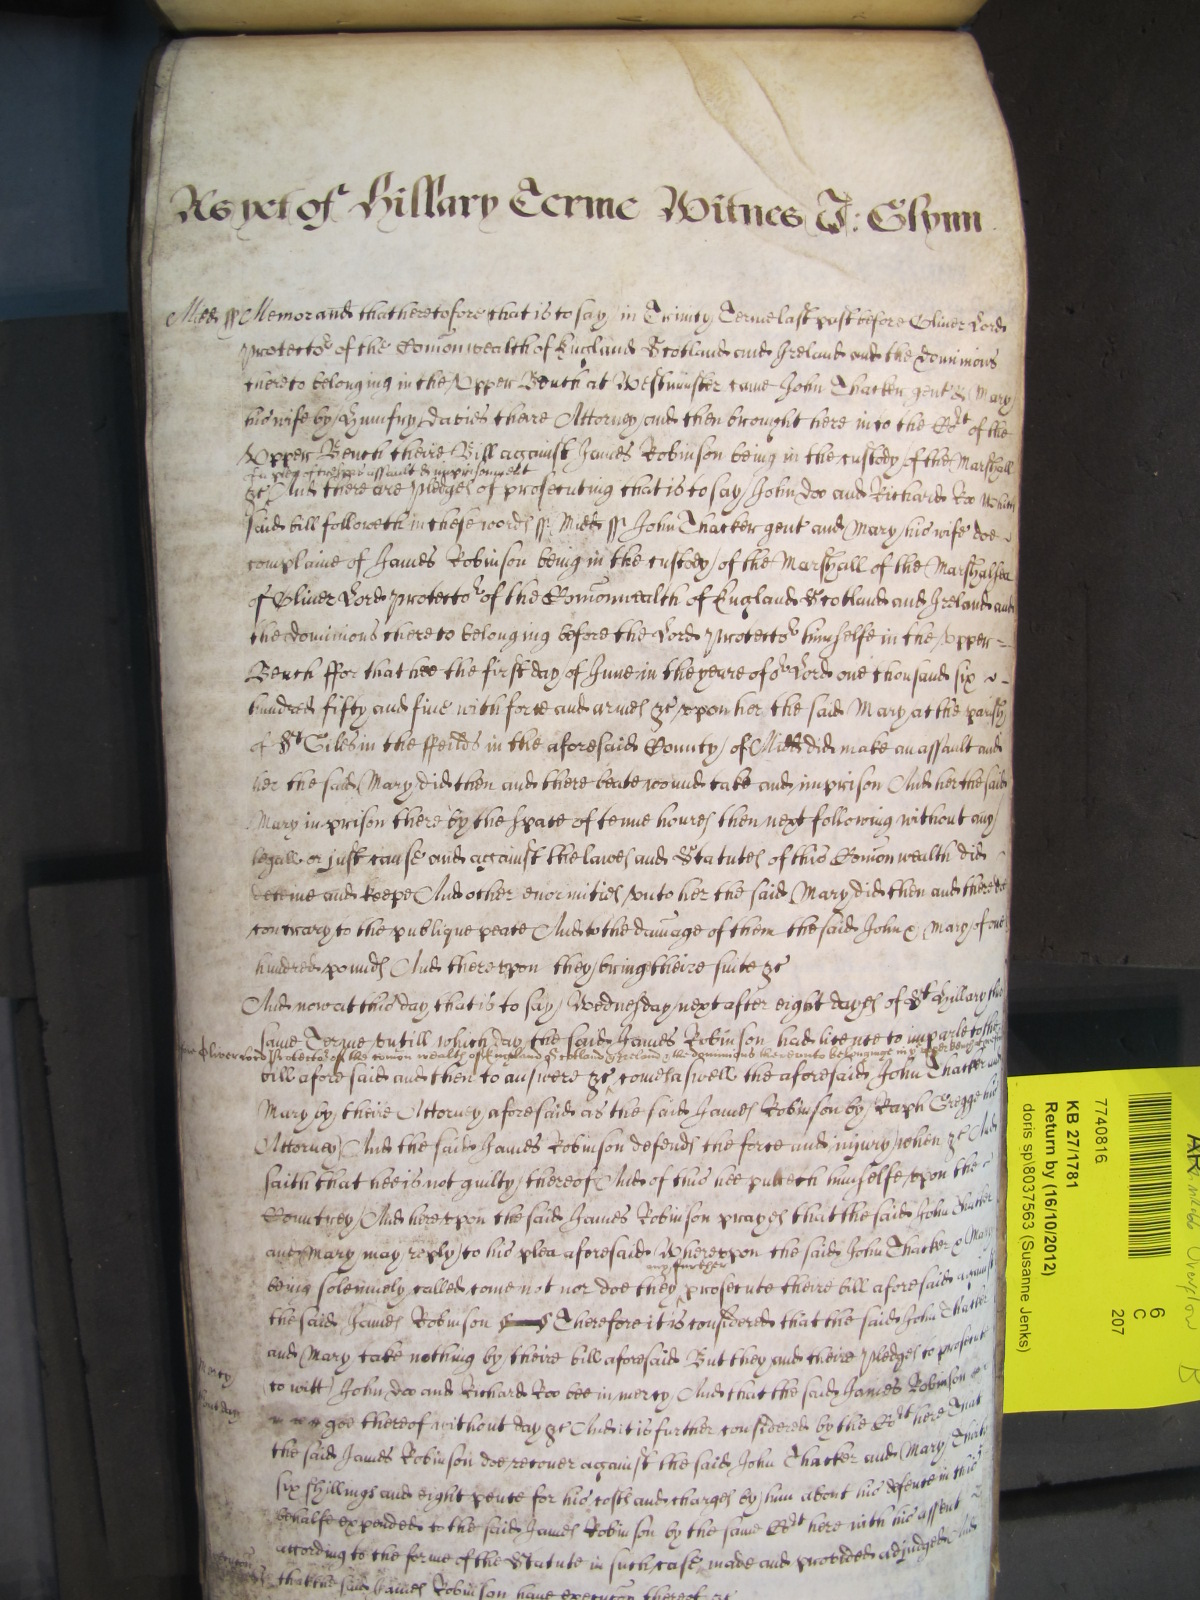 As yet of Hillary Terme Witnes J: Glynn
Midd ss Memorand that heretofore that is to say in Trinity Terme last past before Oliver Lord
Protector of the Comonwealth of England Scotland and Ireland and the dominions
thereto belonging in the Upper Bench at Westminster came John Thacker gent & Mary
his wife by Humfry Davies theire Attorney and then brought here into the Crt of the
Upper Bench theire Bill against James Robinson being in the custody of the Marshall
of a plea of trespas assault & imprisonmt
&c And there are pledges of prosecuting that is to say John doo and Richard Roo which
said bill followeth in these words ss Midd ss John Thacker gent and Mary his wife doe
complaine of James Robinson being in the custody of the Marshall of the Marshalsea
of Oliver Lord Protector of the Comonwealth of England Scotland and Ireland and
the dominions thereto belonging before the Lord Protector himselfe in the Upper
Bench ffor that hee the first day of June in the yeare of or Lord one thousand six
hundred fifty and five with force and armes &c upon her the said Mary at the parish
of St Giles in the ffeilds in the aforesaid County of Midd did make an assault and
her the said Mary did then and there beate wound take and imprison And her the said
Mary in prison there by the space of tenne houres then next following without any
legall or just cause and against the lawes and Statutes of this Comonwealth did
deteine and keepe And other enormities unto her the said Mary did then and there doe
contrary to the publique peace And to the damage of them the said John & Mary of one
hundred pounds And thereupon they bring theire suite &c
And now at this day that is to say Wednesday next after eight dayes of St Hillary this
same Terme untill which day the said James Robinson had licence to imparle to the
before Oliver Lord Protector of the comon wealth of England Scotland & Ireland & the dominions thereunto belonginge in ye upper bench
bill aforesaid and then to answere &c come aswell the aforesaid John Thacker and
Mary by theire Attorney aforesaid as the said James Robinson by Raph Gregge his
Attorney And the said James Robinson defends the force and injury when &c And
saith that hee is not guilty thereof And of this hee putteth himselfe upon the
Countrey And hereupon the said James Robinson prayes that the said John Thacker
and Mary may reply to his plea aforesaid Whereupon the said John Thacker & Mary
any further
being solemnely called come not nor doe they prosecute theire bill aforesaid against
the said James Robinson Therefore it is considered that the said John Thacker
and Mary take nothing by theire bill aforesaid But they and theire pledges to prosecute
mercy
to witt John doo and Richard Roo bee in mercy And that the said James Robinson
without day
goe thereof without day &c And it is further considered by the Crt here That
the said James Robinson doe recover against the said John Thacker and Mary Thirty
six shillings and eight pence for his costs and charges by him about his defence in this
behalfe expended to the said James Robinson by the same Crt here with his assent
according to the forme of the Statute in such case made and provided adjudged And
that the said James Robinson have execution thereof &c
7740816
KB 27/1781
Return by (16/10/2012)
doris sp\8037563 (Susanne Jenks)
6
C
207